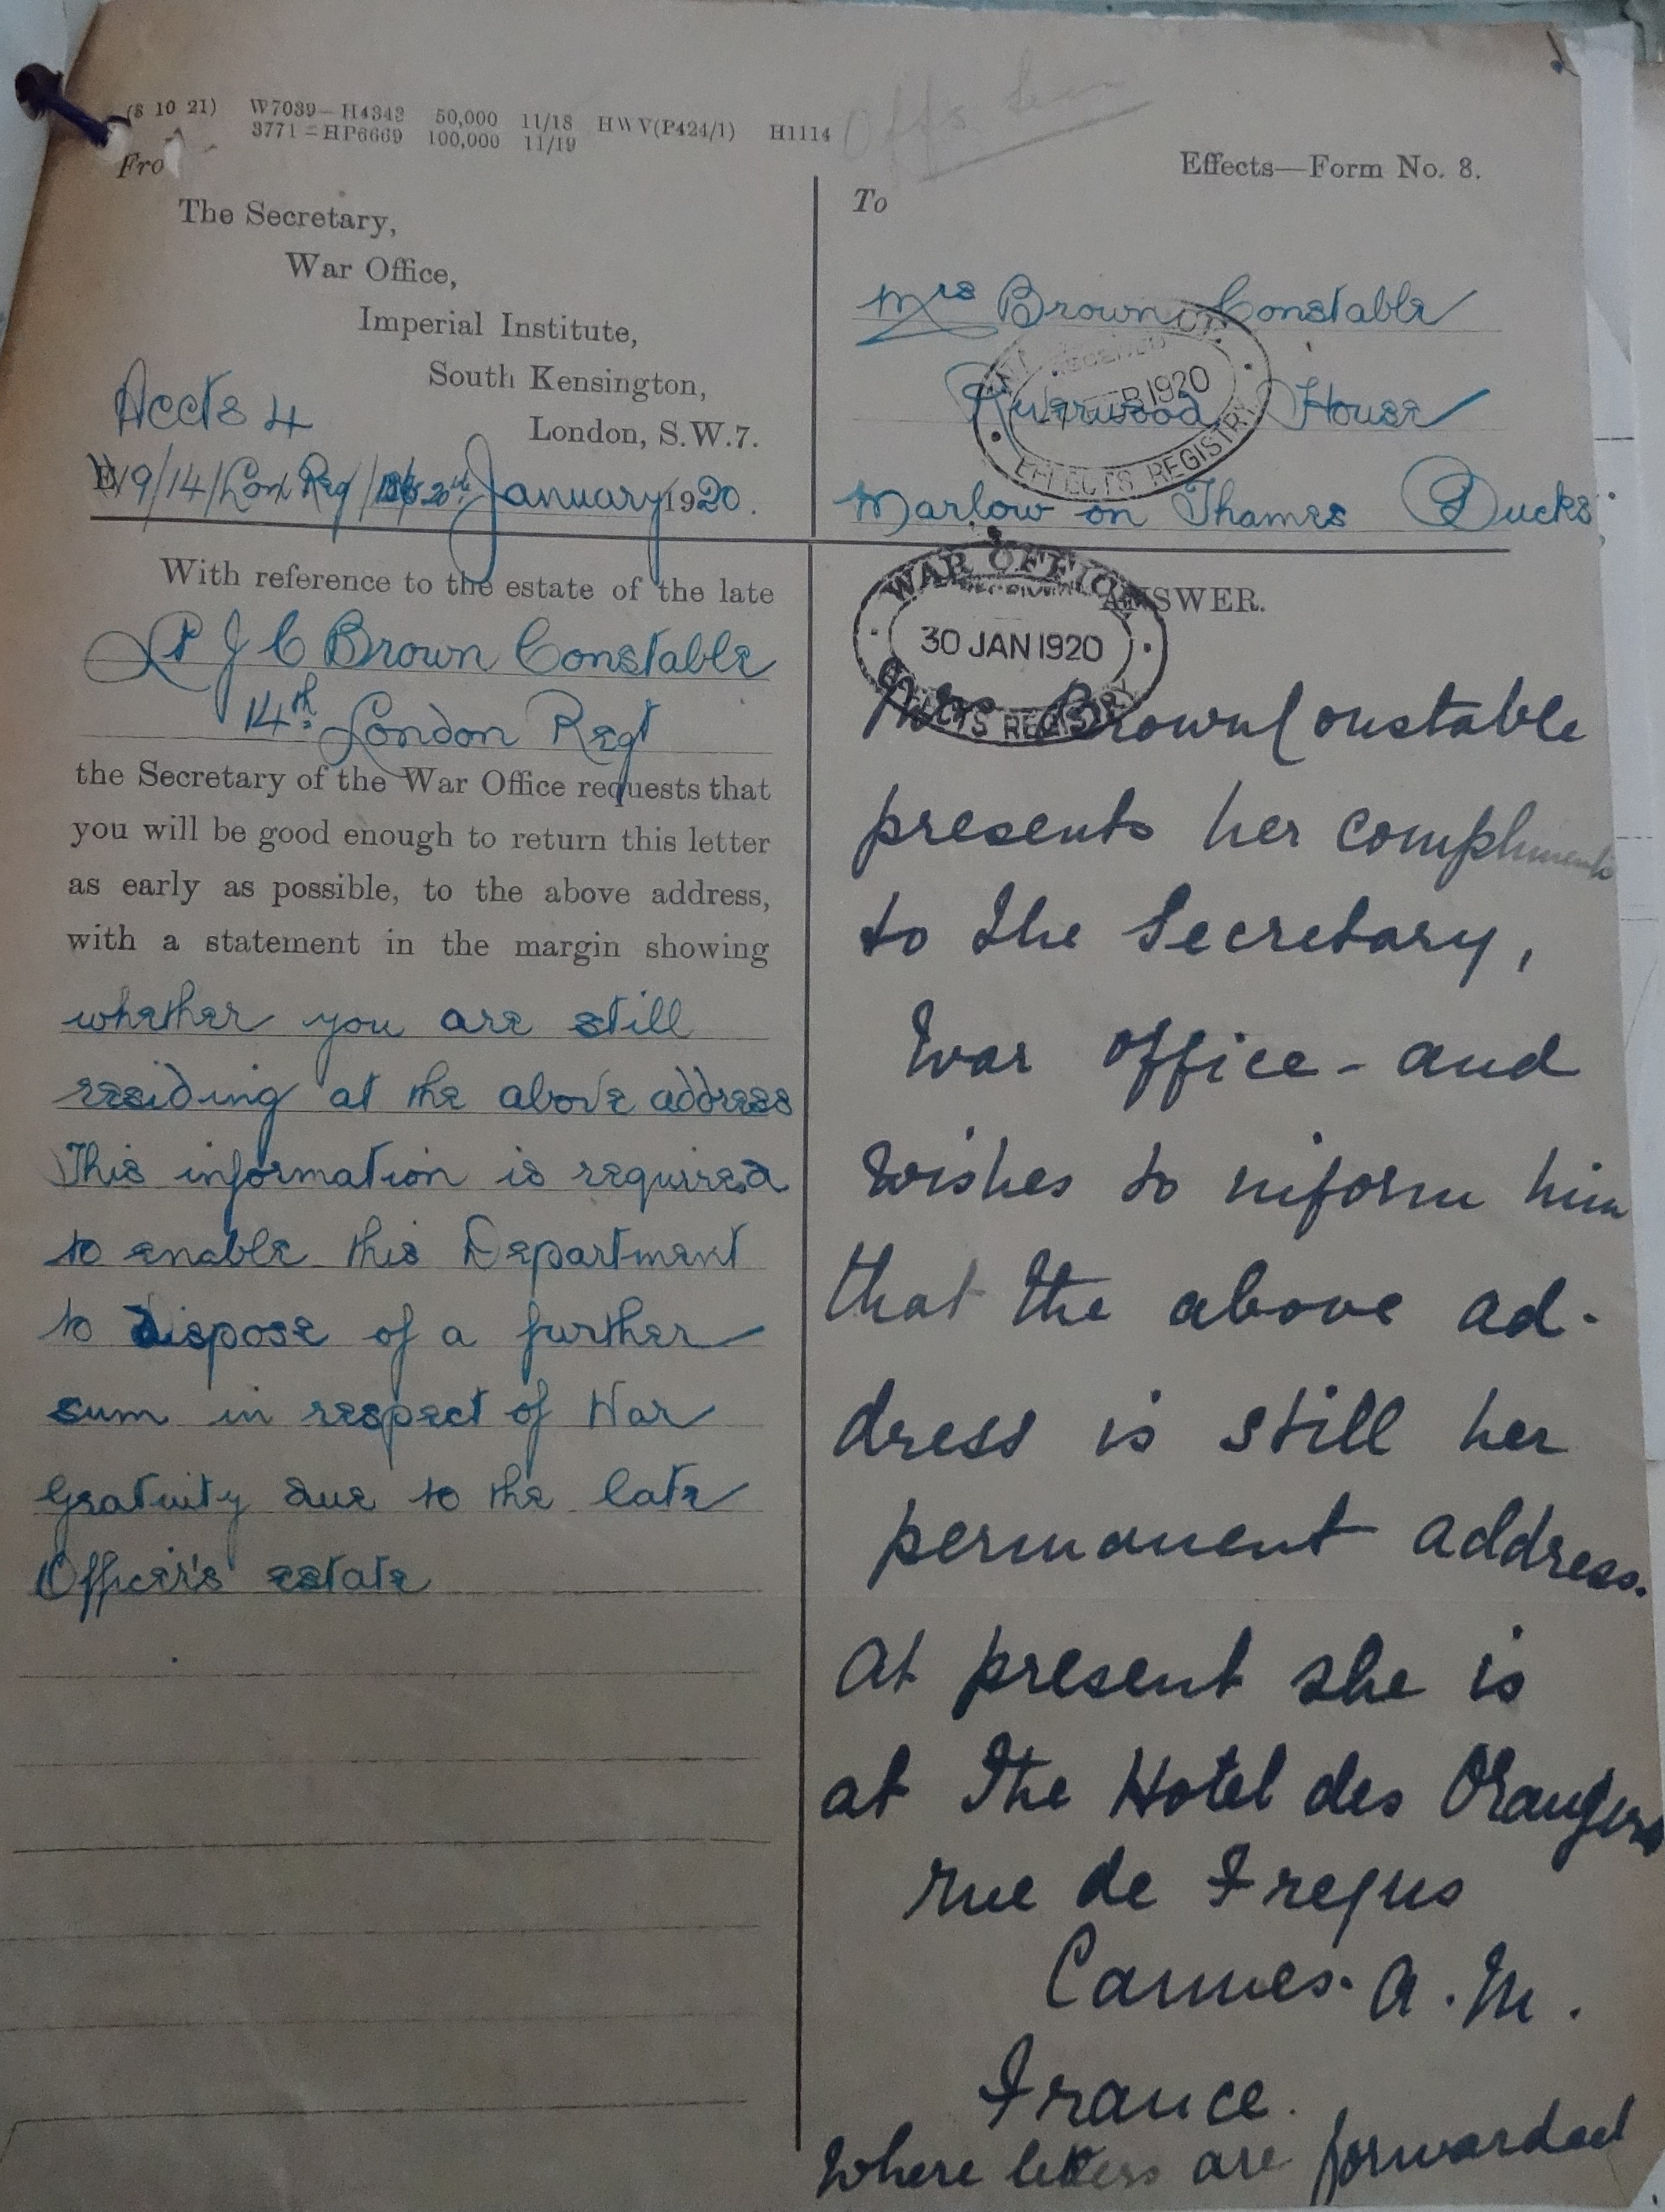 (8 10 21) W7039—H4343 50,000 11/18 HWV(P424/1) H1114
3771—HP6669 100,000 11/19
Effects—Form No. 8.
Fro
The Secretary,
War Office,
Imperial Institute,
South Kensington,
London, S.W.7.
Accts 4
E/9/14/Lon Reg/ 20th January 1920.
To
Mrs Brown Constable
Riverwood House
Marlow on Thames Bucks
1920
EFFECTS REGISTRY
With reference to the estate of the late
Lt J C Brown Constable
14th London Regt
the Secretary of the War Office requests that
you will be good enough to return this letter
as early as possible, to the above address,
with a statement in the margin showing
whether you are still
residing at the above address
This information is required
to enable this Department
to dispose of a further
sum in respect of War
Gratuity due to the late
Officer's estate
WAR OFFICE
RECEIVED
30 JAN 1920
EFFECTS REGISTRY
ANSWER.
Mrs Brown Constable
presents her compliments
to the Secretary,
War Office - and
wishes to inform him
that the above ad-
dress is still her
permanent address.
At present she is
at the Hotel des Orangers
rue de Frejus
Cannes. A. M.
France.
Where letters are forwarded